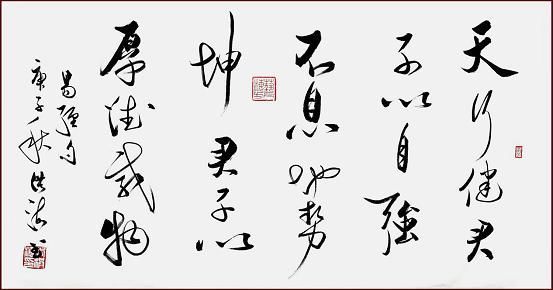 天行健君
子以自強
不息地勢
坤君子以
厚德載物
易經句
庚子秋